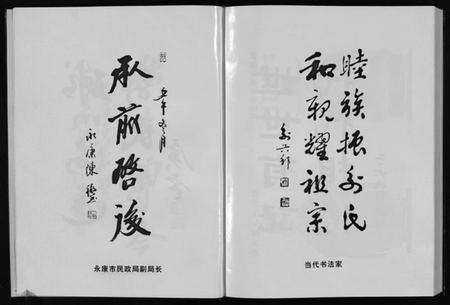 承前啓後
永康陳
永康市民政局副局长
睦族振氏
和親耀祖宗
当代书法家